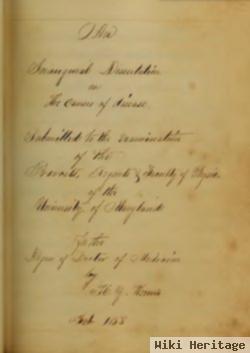 An
Inaugural Dissertation
on
The Causes of disease.
Submitted to the Examination
of the
Provost, Regents & Faculty of Physic
of the
University of Maryland
For the
Degree of Doctor of Medicine
by
Feb
Wiki Heritage